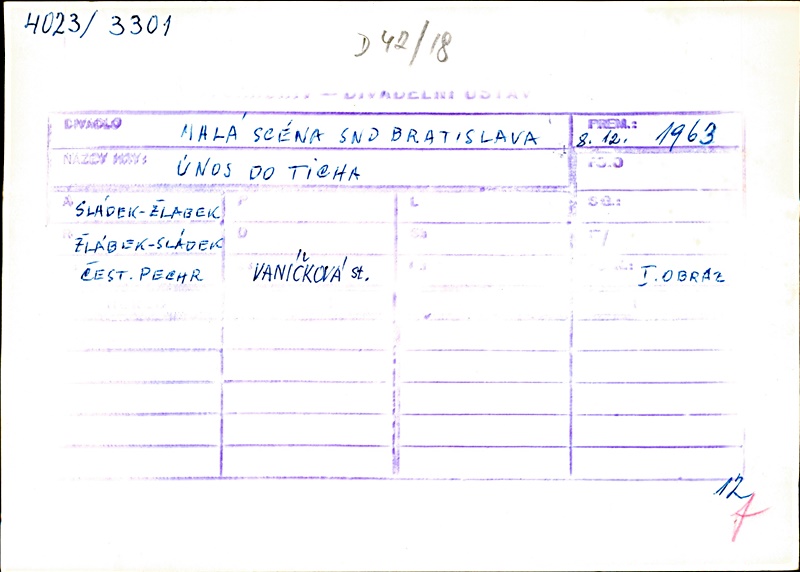 4023/ 3301
D 42/18
— DIVADELNÍ ÚSTAV
DIVADLO MALÁ SCÉNA SND BRATISLAVA PREM.: 8. 12. 1963
NÁZEV HRY: ÚNOS DO TICHA
A SLÁDEK-ŽLÁBEK
ŽLÁBEK-SLÁDEK
ČEST. PECHR VANÍČKOVÁ st. I. OBRAZ
12